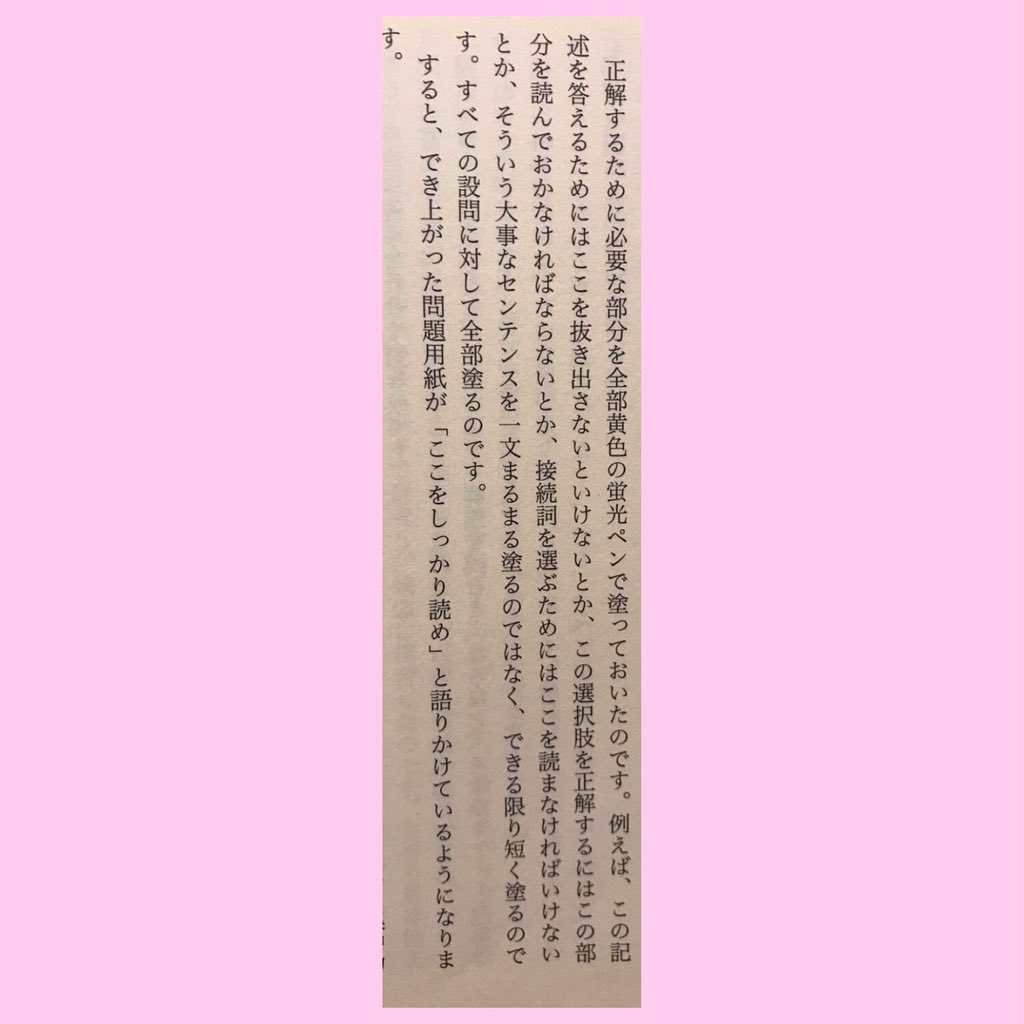 正解するために必要な部分を全部黄色の蛍光ペンで塗っておいたのです。例えば、この記
述を答えるためにはここを抜き出さないといけないとか、この選択肢を正解するにはこの部
分を読んでおかなければならないとか、接続詞を選ぶためにはここを読まなければいけない
とか、そういう大事なセンテンスを一文まるまる塗るのではなく、できる限り短く塗るので
す。すべての設問に対して全部塗るのです。
すると、でき上がった問題用紙が「ここをしっかり読め」と語りかけているようになりま
す。